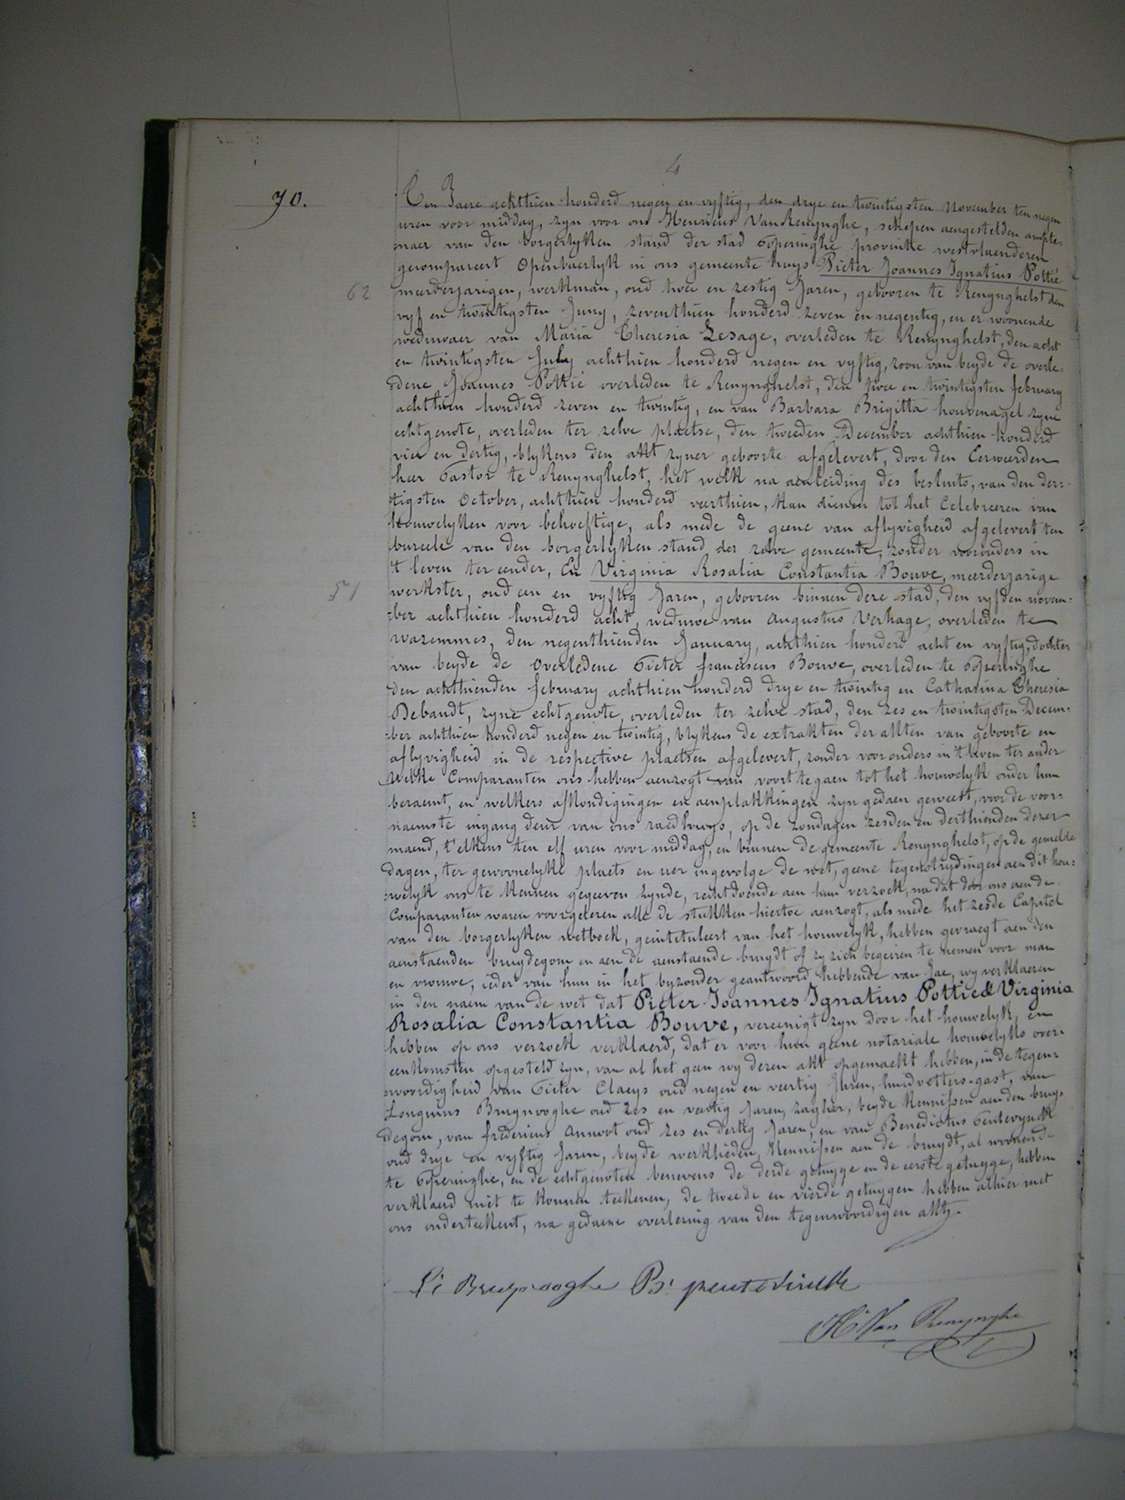 4
70.
Ten Jaere achthien honderd negen en vyftig, den drye en twintigsten November ten negen
uren voor middag, zyn voor ons Henricus Van Renynghe, schepen aengestelden ampte-
naer van den borgerlyken stand der stad Poperinghe provintie westvlaenderen
gecompareert openbaerlyk in ons gemeente huys Pieter Joannes Ignatius Pottié
62
meerderjarigen, werkman, oud twee en zestig Jaren, gebooren te Renynghelst den
vyf en twintigsten Juny, zeventhien honderd zeven en negentig, en er woonende
weduwaer van Maria Theresia Lesage, overleden te Renynghelst, den acht
en twintigsten July achthien honderd negen en vyftig, zoon van beyde de overle-
dene Joannes Pottié overleden te Renynghelst, den twee en twintigsten february
achthien honderd zeven en twintig, en van Barbara Brigitta houvenagel zyne
echtgenote, overleden ter zelve plaetse, den tweeden December achthien honderd
vier en dertig, blykens den akt zyner geboorte afgelevert, door den Eerweerden
heer Pastor te Renynghelst, het welk na aenleiding des besluits, van den der-
tigsten October, achthien honderd veerthien, kan dienen tot het Celebreeren van
houwelyken voor behoeftige, als mede de geene van aflyvigheid afgelevert ten
bureele van den borgerlyken stand der zelve gemeente, zonder voorouders in
't leven ter eender, En Virginia Rosalia Constantia Bouve, meerderjarige
51
werkster, oud een en vyftig Jaren, gebooren binnen deze stad, den vyfden novem-
ber achthien honderd acht, weduwe van Augustus Verhage, overleden te
wazemmes, den negenthienden January, achthien honderd acht en vyftig, dochter
van beyde de overledene Pieter franciscus Bouve, overleden te Poperinghe
den achthienden february achthien honderd drye en twintig en Catharina Theresia
Debandt, zyne echtgenote, overleden ter zelve stad, den zes en twintigsten Decem-
ber achthien honderd negen en twintig, blykens de extrakten der akten van geboorte en
aflyvigheid in de respective plaetsen afgelevert, zonder voorouders in 't leven ter ander
welke Comparanten ons hebben aenzogt van voort te gaen tot het houwelyk onder hun
beraemt, en welkers afkondigingen en aenplakkingen zyn gedaen geweest, voor de voor-
naemste ingang deur van ons raedhuys, op de zondagen zesden en derthienden dezer
maend, t'elkens ten elf uren voor middag, en binnen de gemeente Renynghelst, op de gemelde
dagen, ter gewoonelyke plaets en uer ingevolge de wet, geene tegenstrydingen aen dit hou-
welyk ons te kennen gegeven zynde, rechtdoende aen hun verzoek, na dat door ons aen de
Comparanten waren voorgelezen alle de stukken hiertoe aenzogt, als mede het zesde Capitel
van den borgerlyken wetboek, geintituleert van het houwelyk, hebben gevraegt aen den
aenstaenden bruydegom en aen de aenstaende bruydt of zy zich begeeren te nemen voor man
en vrouwe, ieder van hun in het byzonder geantwoord hebbende van Jae, wy verklaeren
in den naem van de wet dat Pieter Joannes Ignatius Pottie & Virginia
Rosalia Constantia Bouve, vereenigt zyn door het houwelyk, en
hebben op ons verzoek verklaerd, dat er voor hun geene notariale houwelyks over-
eenkomsten opgesteld zyn, van al het geen wy deren akt opgemaekt hebben, in de tegen-
woordigheid van Pieter Claeys oud negen en veertig Jaren, huidvetters-gast, van
Longinus Bruynooghe oud zes en veertig Jaren, zagher, beyde kennissen aen den bruy-
degom, van fredericus Annoot oud zes en dertig Jaren, en van Benedictus Pentevynck
oud drye en vyftig Jaren, beyde werklieden, kennissen aen de bruydt, al woonende
te Poperinghe, en de echtgenoten benevens de derde getuyge en de eerste getuyge, hebben
verklaerd niet te konnen teekenen, de tweede en vierde getuygen hebben alhier met
ons onderteekent, na gedaene overlezing van den tegenwoordigen akt.
H. Van Renynghe